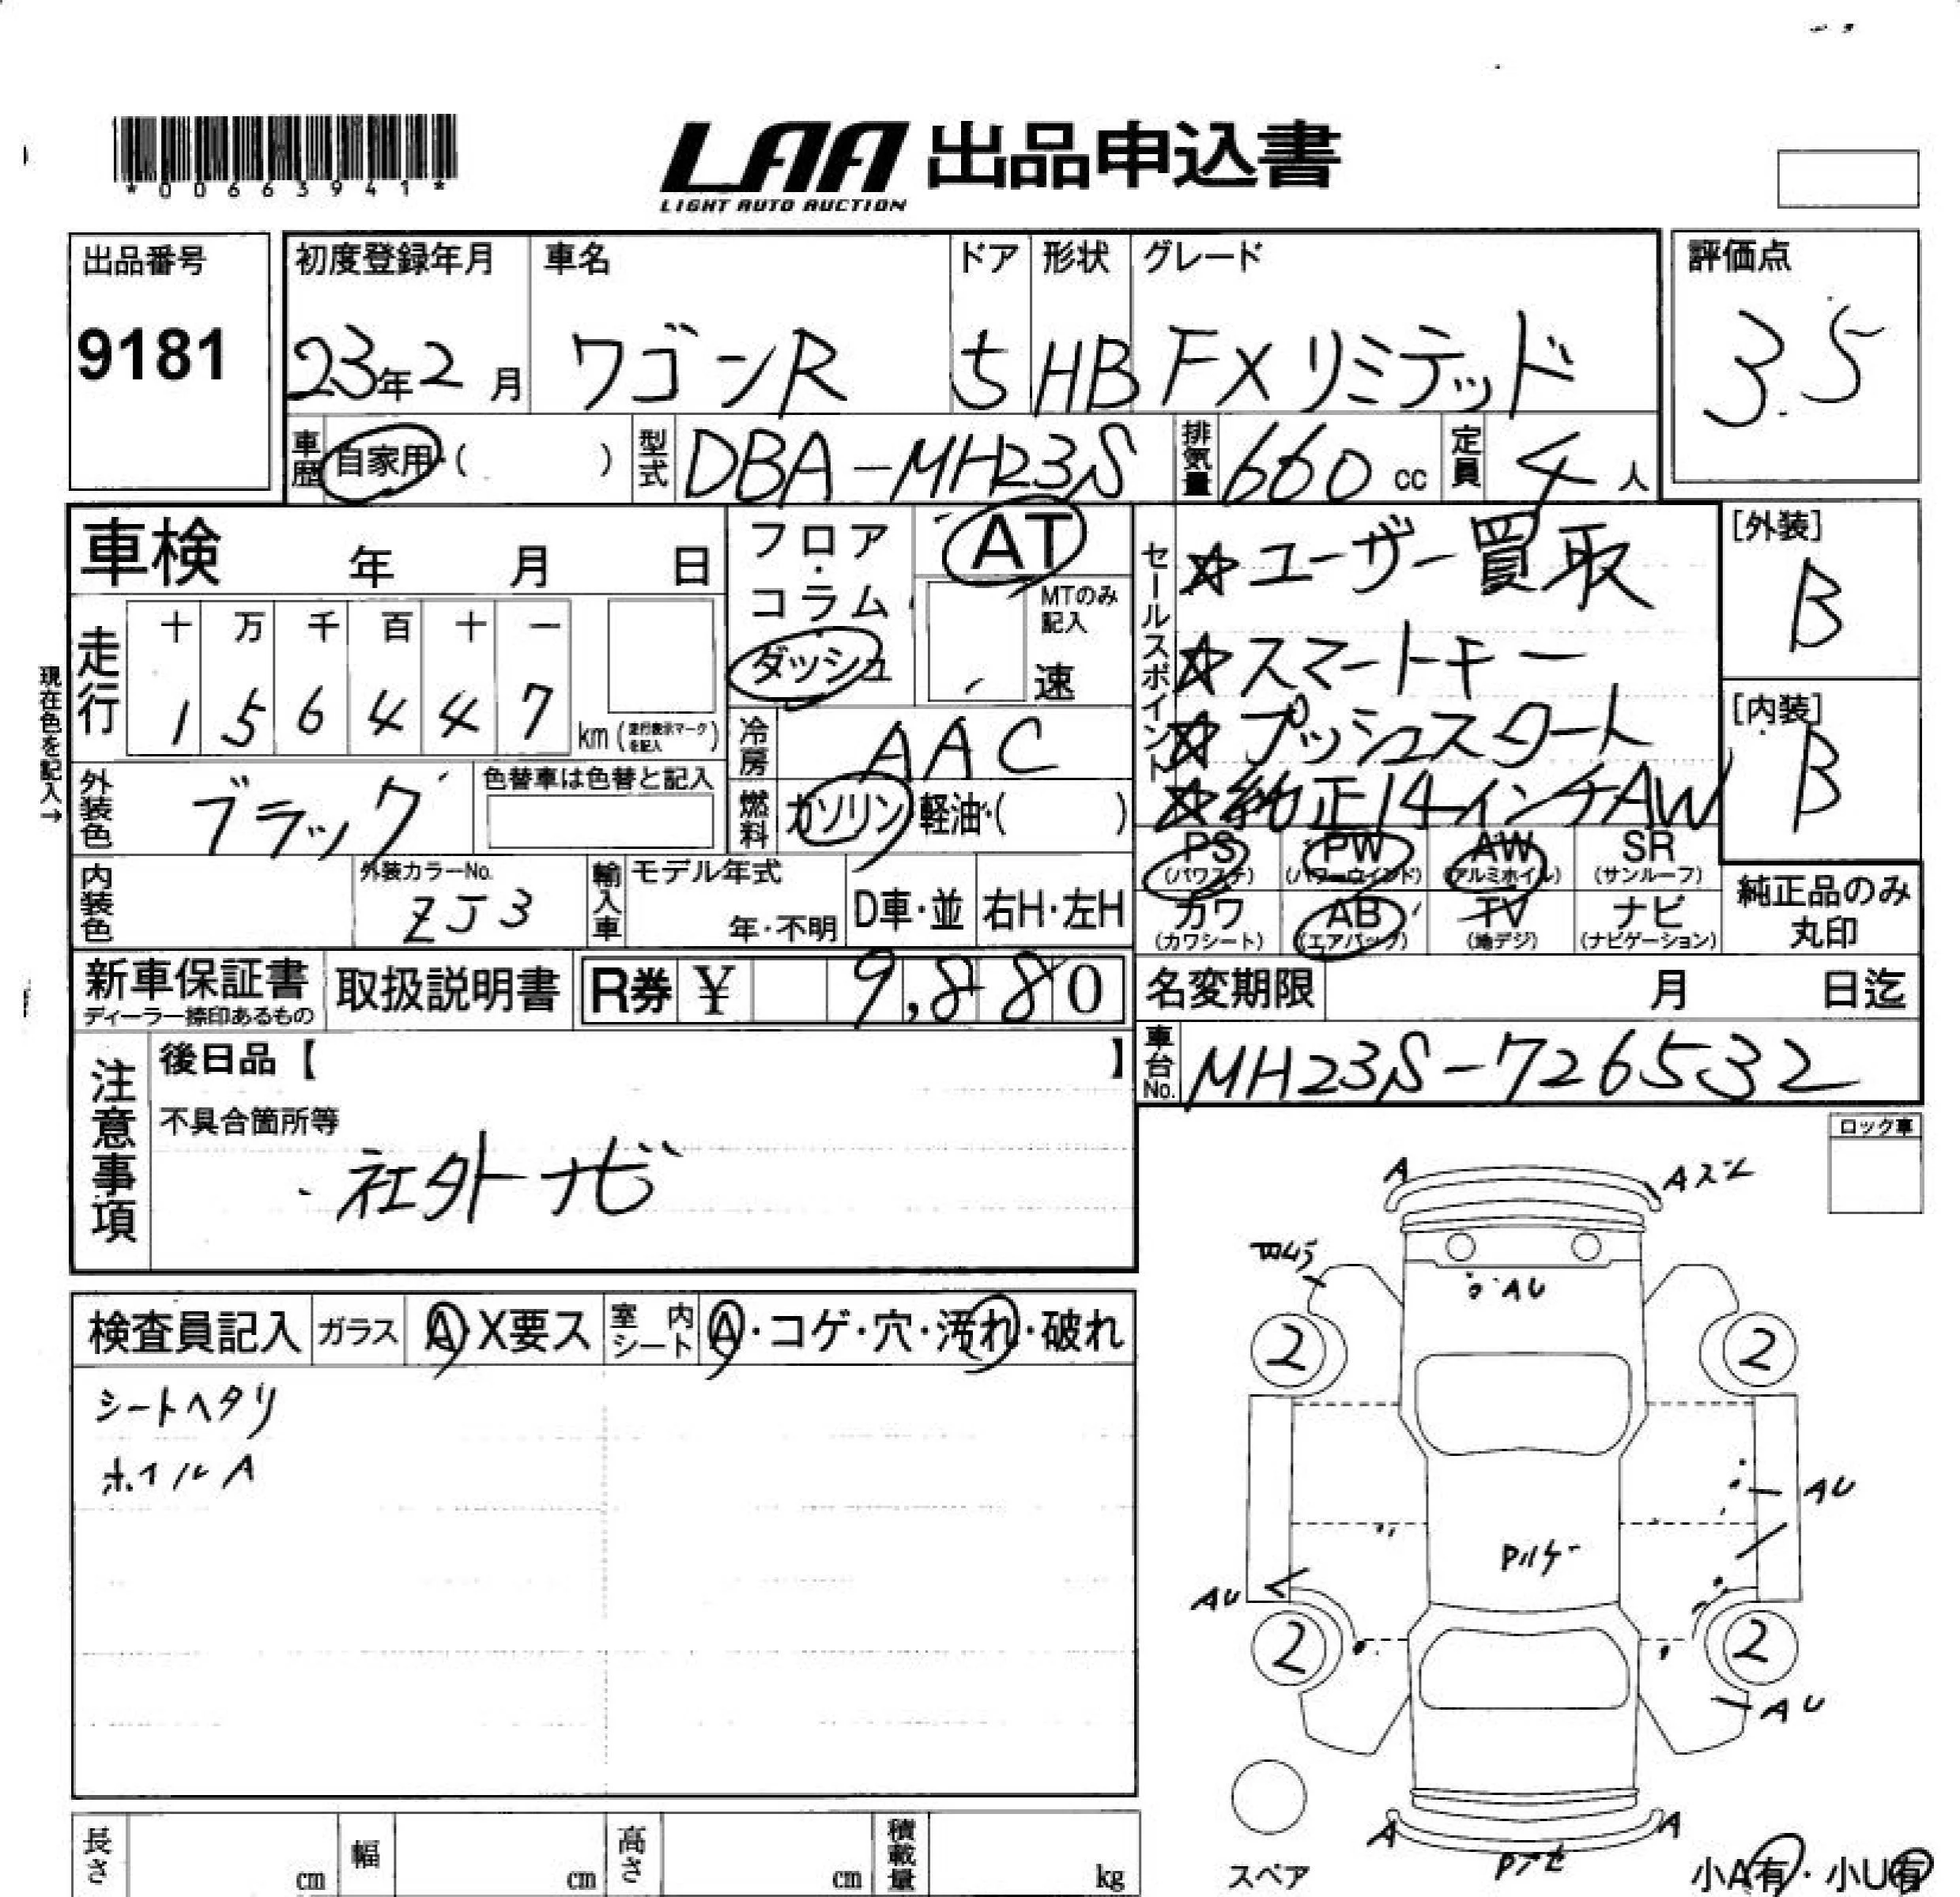 *00663941*
LAA 出品申込書
LIGHT AUTO AUCTION
出品番号
9181
初度登録年月 車名 ドア 形状 グレード
23年2月 ワゴンR 5 HB FXリミテッド
評価点
3.5
車歴 自家用・( ) 型式 DBA-MH23S 排気量 660 cc 定員 4人
車検 年 月 日
フロア・コラム
ダッシュ
AT
MTのみ記入
速
現在色を記入→
走行 十 万 千 百 十 一
1 5 6 4 4 7 km (走行表示マークを記入)
冷房 AAC
外装色 ブラック
色替車は色替と記入
燃料 ガソリン・軽油・( )
セールスポイント
☆ユーザー買取
☆スマートキー
☆プッシュスタート
☆純正14インチAW
[外装]
B
[内装]
B
内装色 外装カラーNo. ZJ3
輸入車 モデル年式 年・不明 D車・並 右H・左H
PS (パワステ) PW (パワーウインド) AW (アルミホイル) SR (サンルーフ)
カワ (カワシート) AB (エアバック) TV (地デジ) ナビ (ナビゲーション)
純正品のみ丸印
新車保証書 ディーラー捺印あるもの 取扱説明書 R券 ¥ 9,880
名変期限 月 日迄
車台No. MH23S-726532
注意事項
後日品【 】
不具合箇所等
社外ナビ
ロック車
検査員記入 ガラス A・X要ス 室内シート A・コゲ・穴・汚れ・破れ
シートヘタリ
ホイルA
A Aスレ
AU
2 2
AU
AU
2 2
AU
A A
スペア
小A有・小U有
長さ cm 幅 cm 高さ cm 積載量 kg